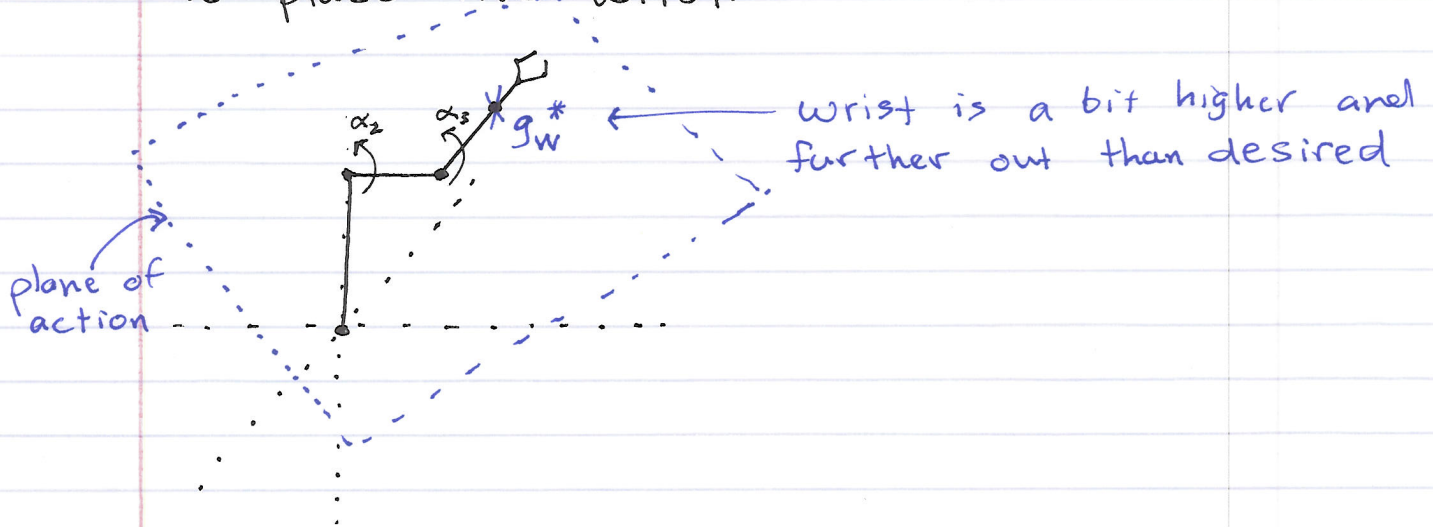 to plane of action
α₂
α₃
g_w*
wrist is a bit higher and
further out than desired
plane of
action